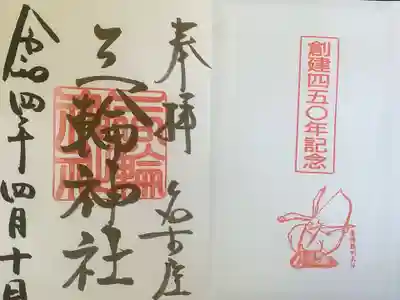 創建四五〇年記念
奉拝 名古屋
三輪神社
三輪神社
令和四年四月十日